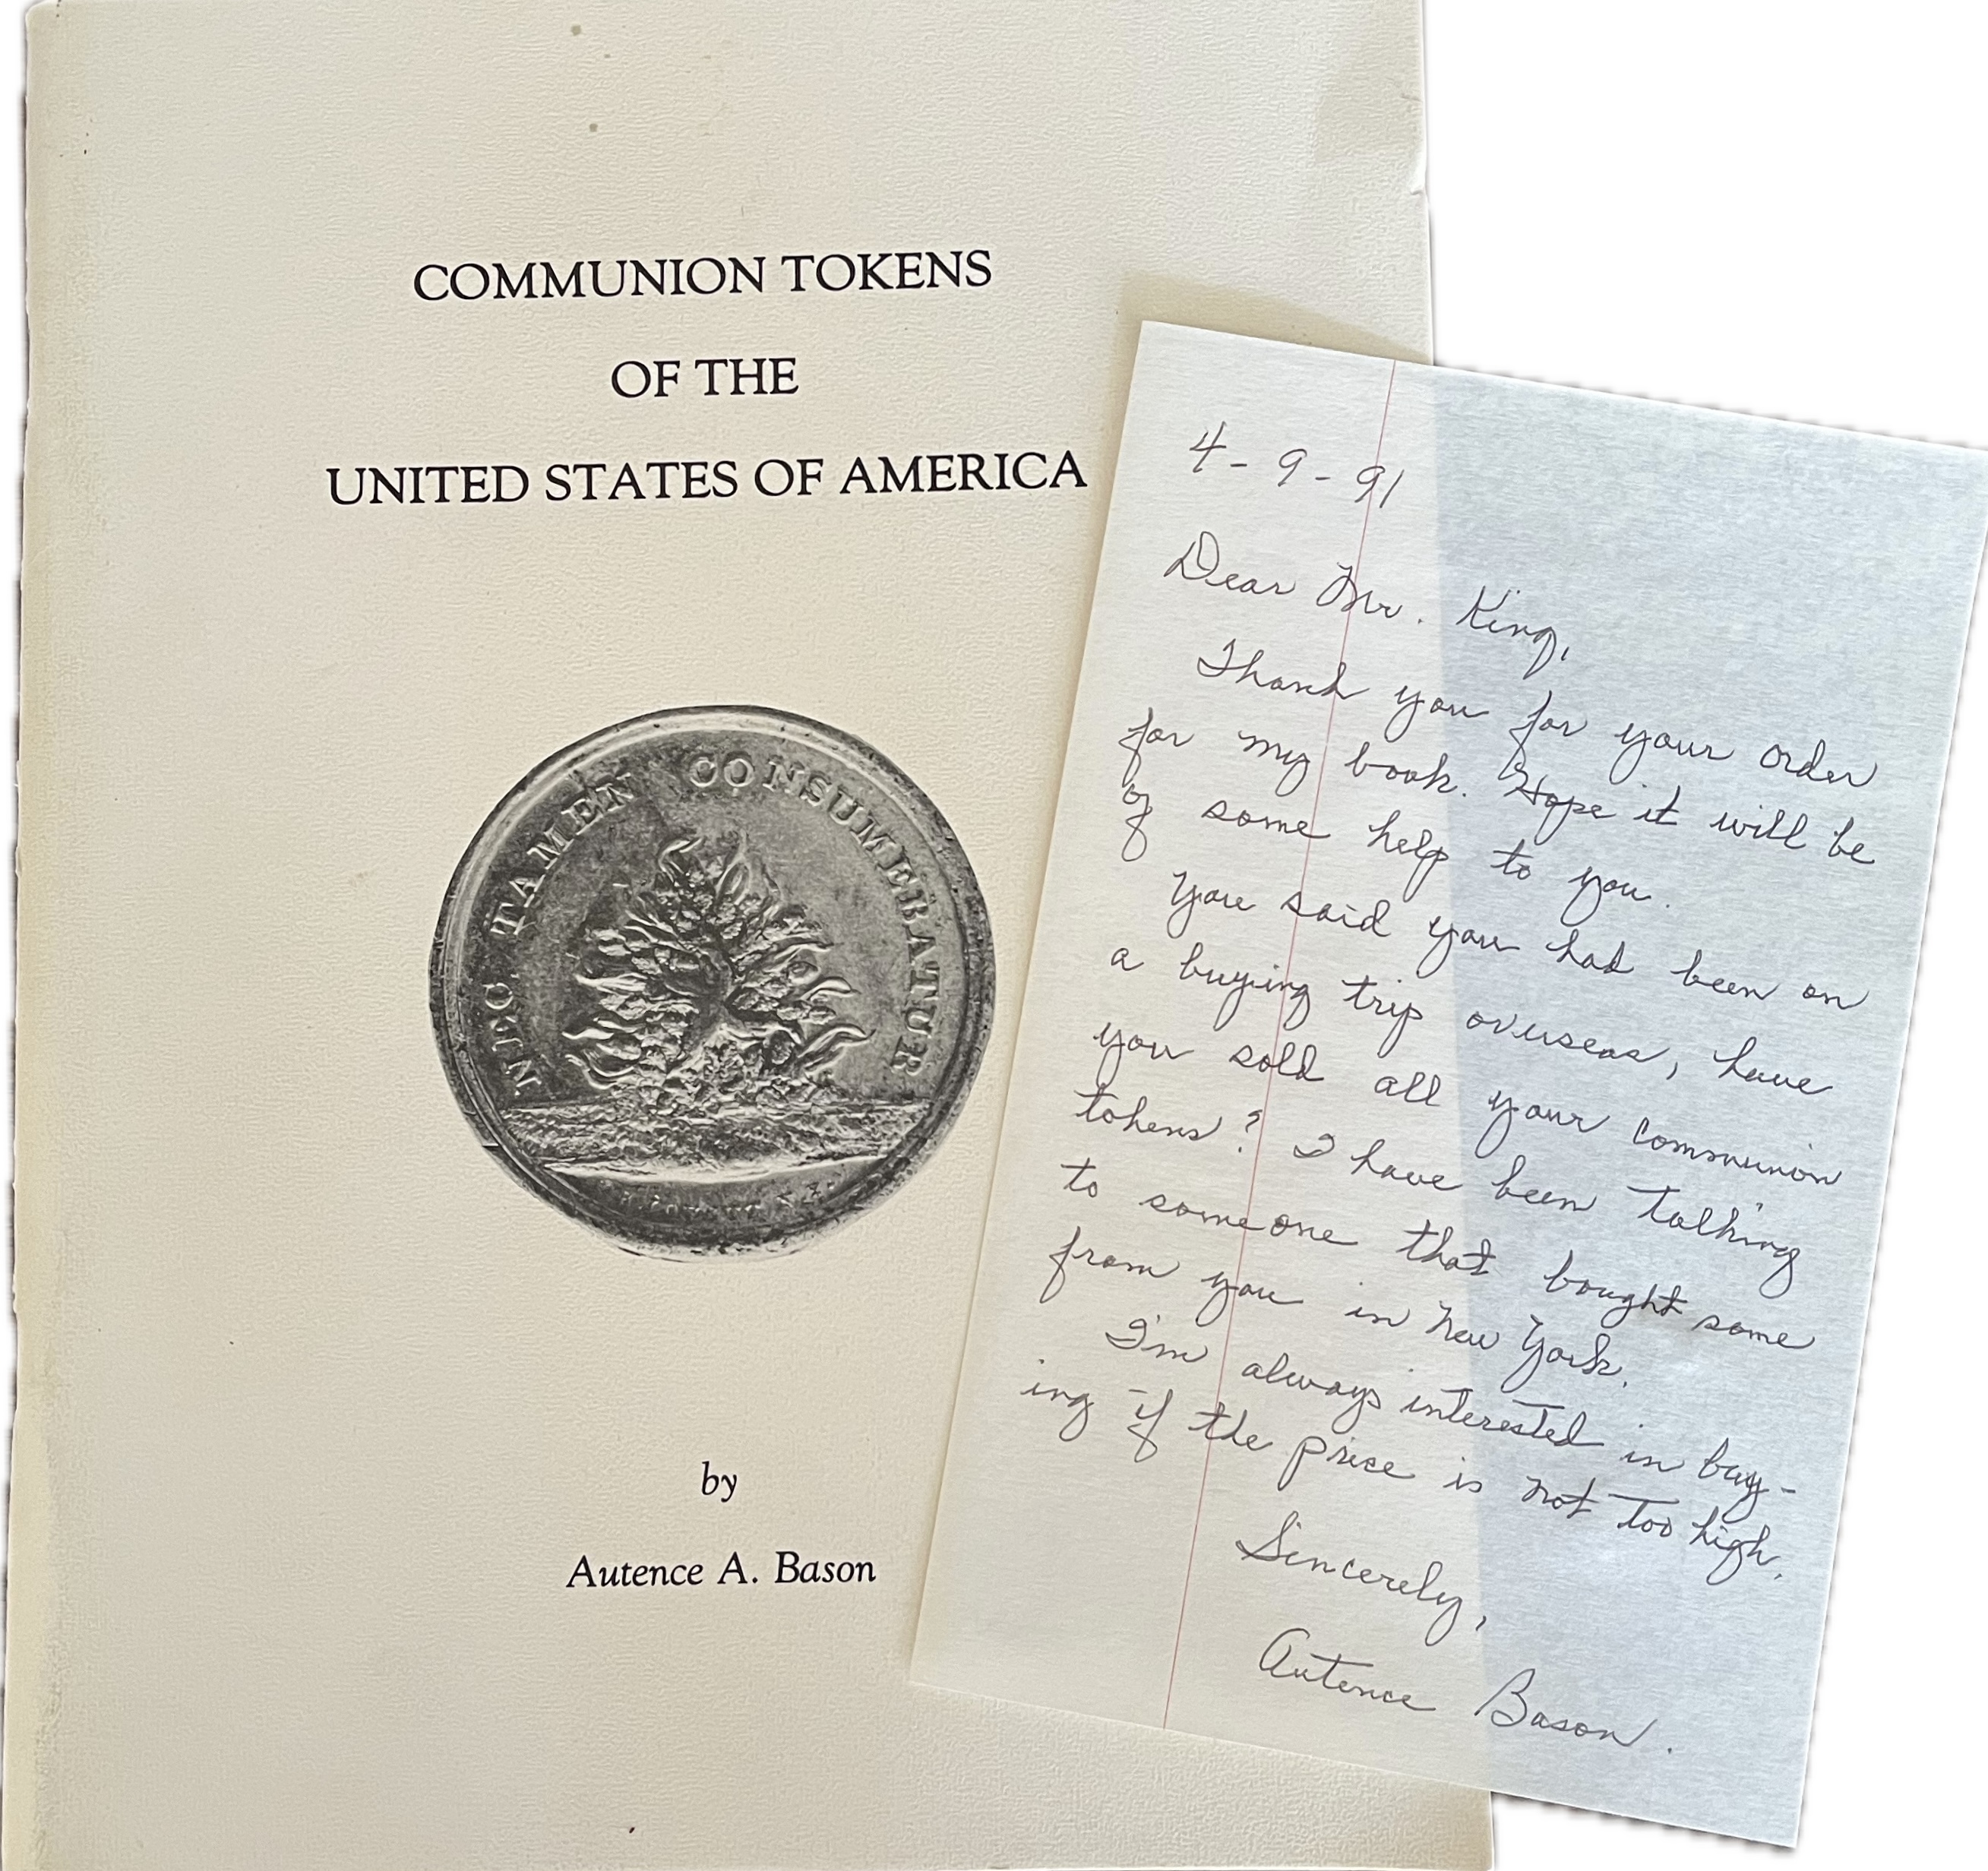 COMMUNION TOKENS
OF THE
UNITED STATES OF AMERICA
NEC TAMEN CONSUMEBATUR
by
Autence A. Bason
4-9-91
Dear Mr. King,
Thank you for your order
for my book. Hope it will be
of some help to you.
You said you had been on
a buying trip overseas, have
you sold all your communion
tokens? I have been talking
to someone that bought some
from you in New York.
I'm always interested in buy-
ing if the price is not too high.
Sincerely,
Autence Bason.